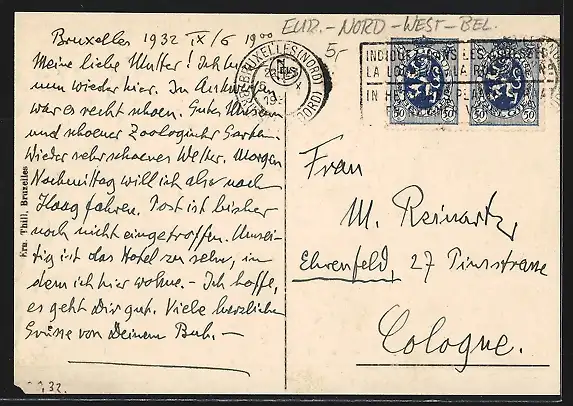 EUR.-NORD-WEST-BEL.
5,-
Bruxelles 1932 IX/6 19⁰⁰
Meine liebe Mutter! Ich bin
nun wieder hier. In Antwerpen
war es recht schoen. Gutes Museum
und schoener Zoologischer Garten.
Wieder sehr schoenes Wetter. Morgen
Nachmittag will ich aber nach
Haag fahren. Post ist bisher
noch nicht eingetroffen. Umsei-
tig ist das Hotel zu sehn, in
dem ich hier wohne. - Ich hoffe,
es geht Dir gut. Viele herzliche
Grüsse von Deinem Bub. -
Ern. Thill, Bruxelles
BRUXELLES (NORD)
50 50 50 50
Frau
M. Reinartz,
Ehrenfeld, 27 Piusstrasse
Cologne.
32.